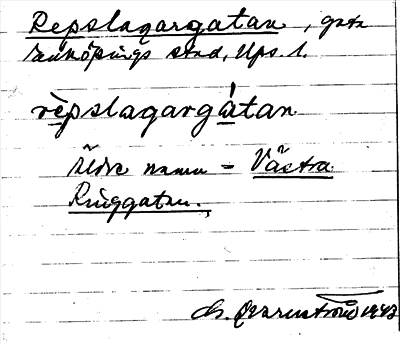 Repslagargatan, gata
Enköpings stad, Ups. l.
rèpslagargátan
Äldre namn = Västra
Ringgatan.
1943